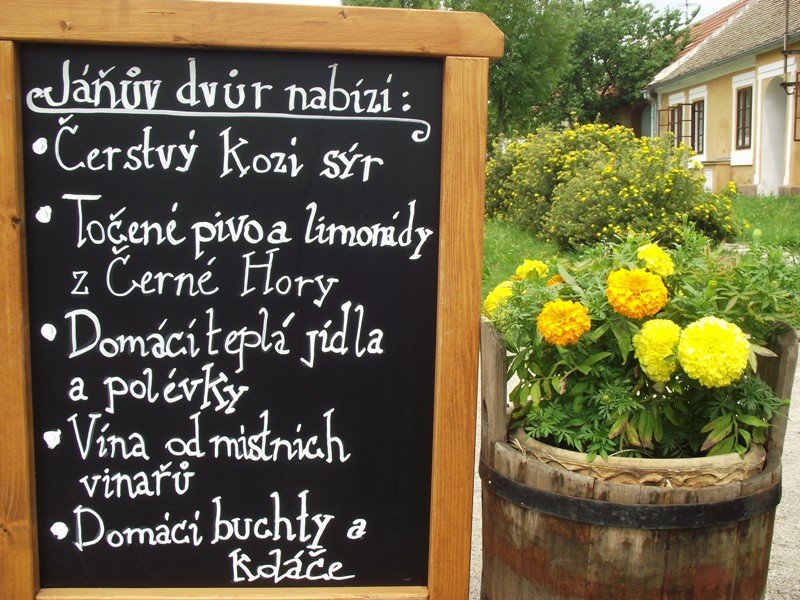 Jáňův dvůr nabízí:
• Čerstvý Kozí sýr
• Točené pivo a limonády
z Černé Hory
• Domácí teplá jídla
a polévky
• Vína od místních
vinařů
• Domácí buchty a
Koláče